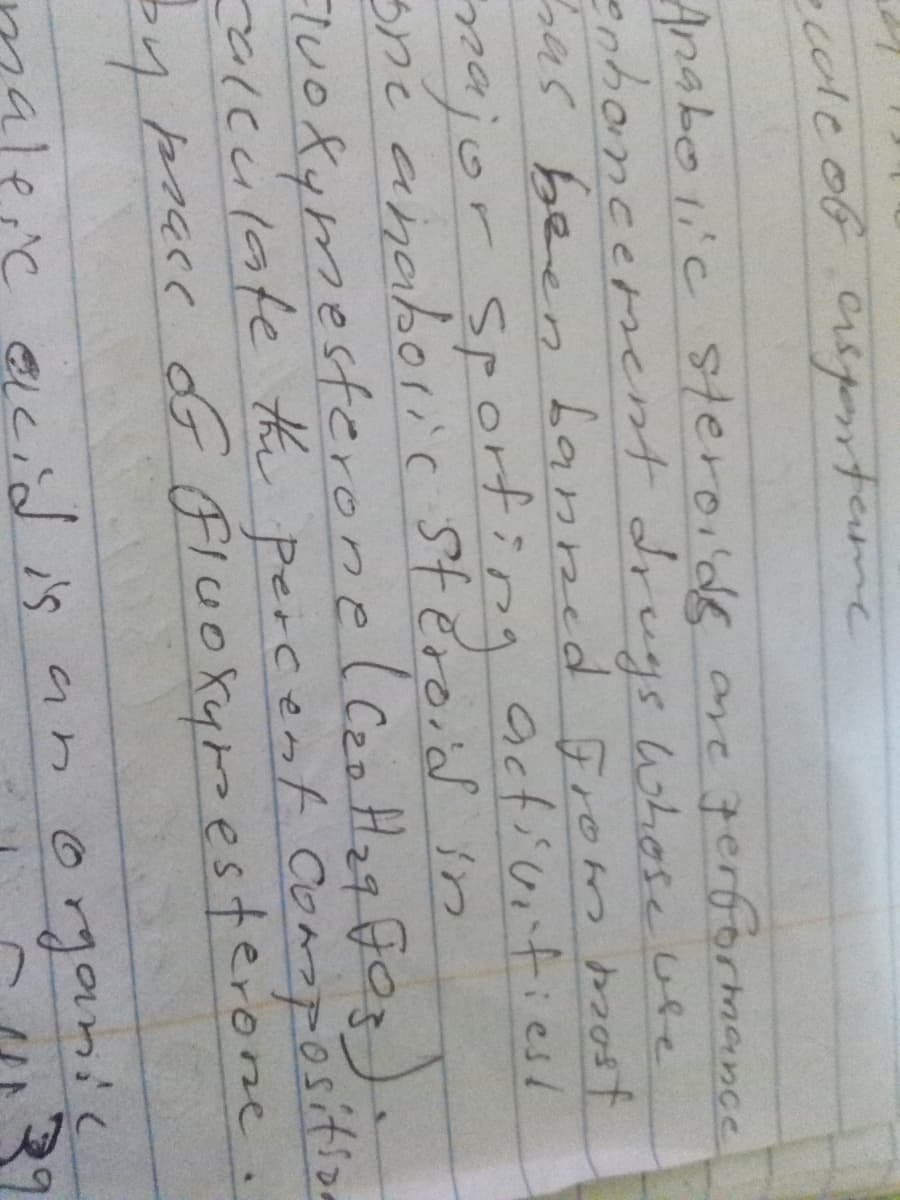 ecule of aspartame
Anabolic steroids are performance
enhancement drugs whose use
has been banned from most
major sporting activities
one anabolic steroid in
Fluoxymesterone (C20H29FO3).
calculate the percent composition
by mass of fluoxymesterone.
maleic acid is an organic